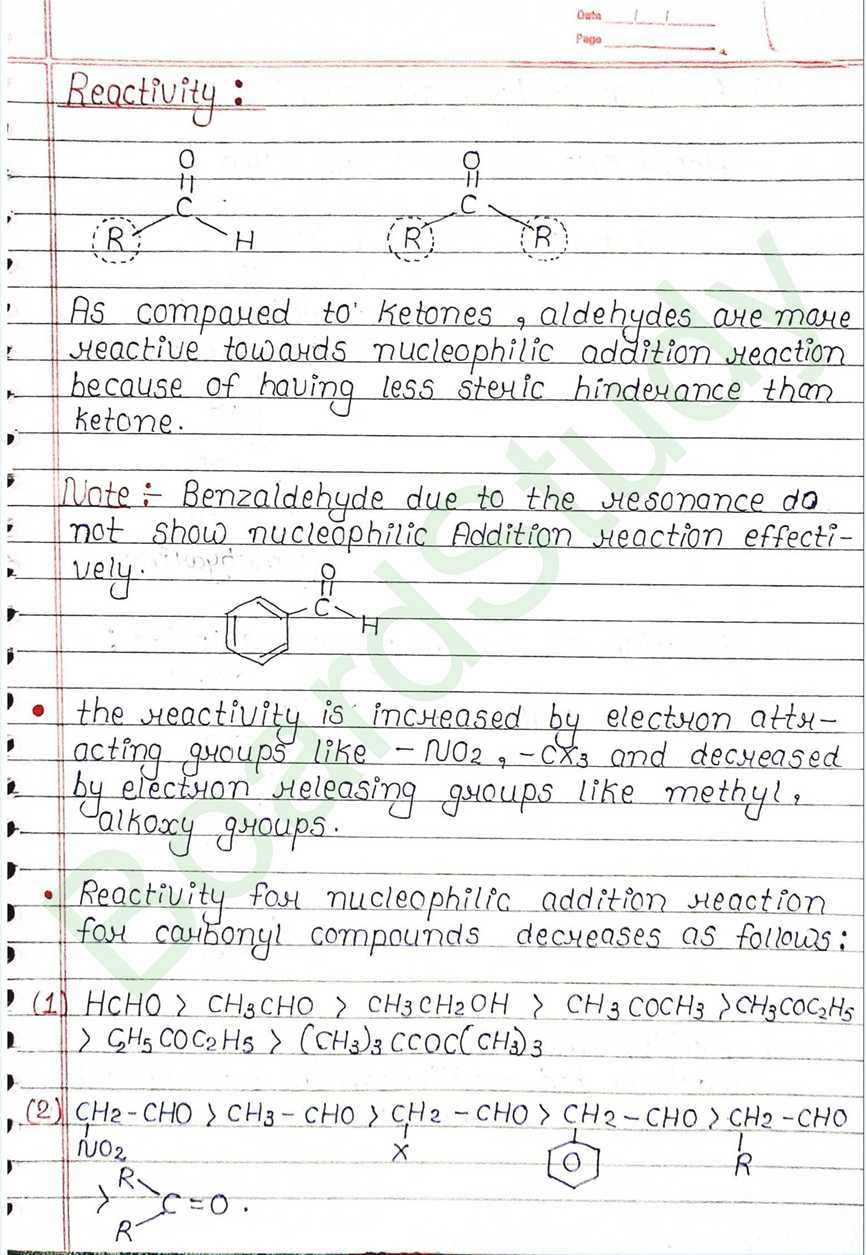 Date / /
Page
Reactivity :
O
||
C
R
H
O
||
C
R
R
As compared to ketones, aldehydes are more
reactive towards nucleophilic addition reaction
because of having less steric hinderance than
ketone.
Note :- Benzaldehyde due to the resonance do
not show nucleophilic Addition reaction effecti-
vely.
O
||
C
H
• the reactivity is increased by electron attr-
acting groups like -NO2, -CX3 and decreased
by electron releasing groups like methyl,
alkoxy groups.
• Reactivity for nucleophilic addition reaction
for carbonyl compounds decreases as follows:
(1) HCHO > CH3CHO > CH3CH2OH > CH3COCH3 > CH3COC2H5
> C2H5COC2H5 > (CH3)3CCOC(CH3)3
(2) CH2-CHO > CH3-CHO > CH2-CHO > CH2-CHO > CH2-CHO
NO2 X R
> R
C=O.
R
BoardStudy